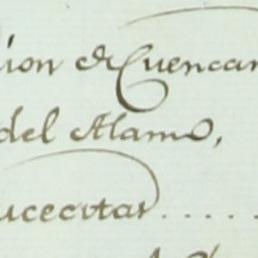 ion de Cuencam
del Alamo,
ucecitas.....